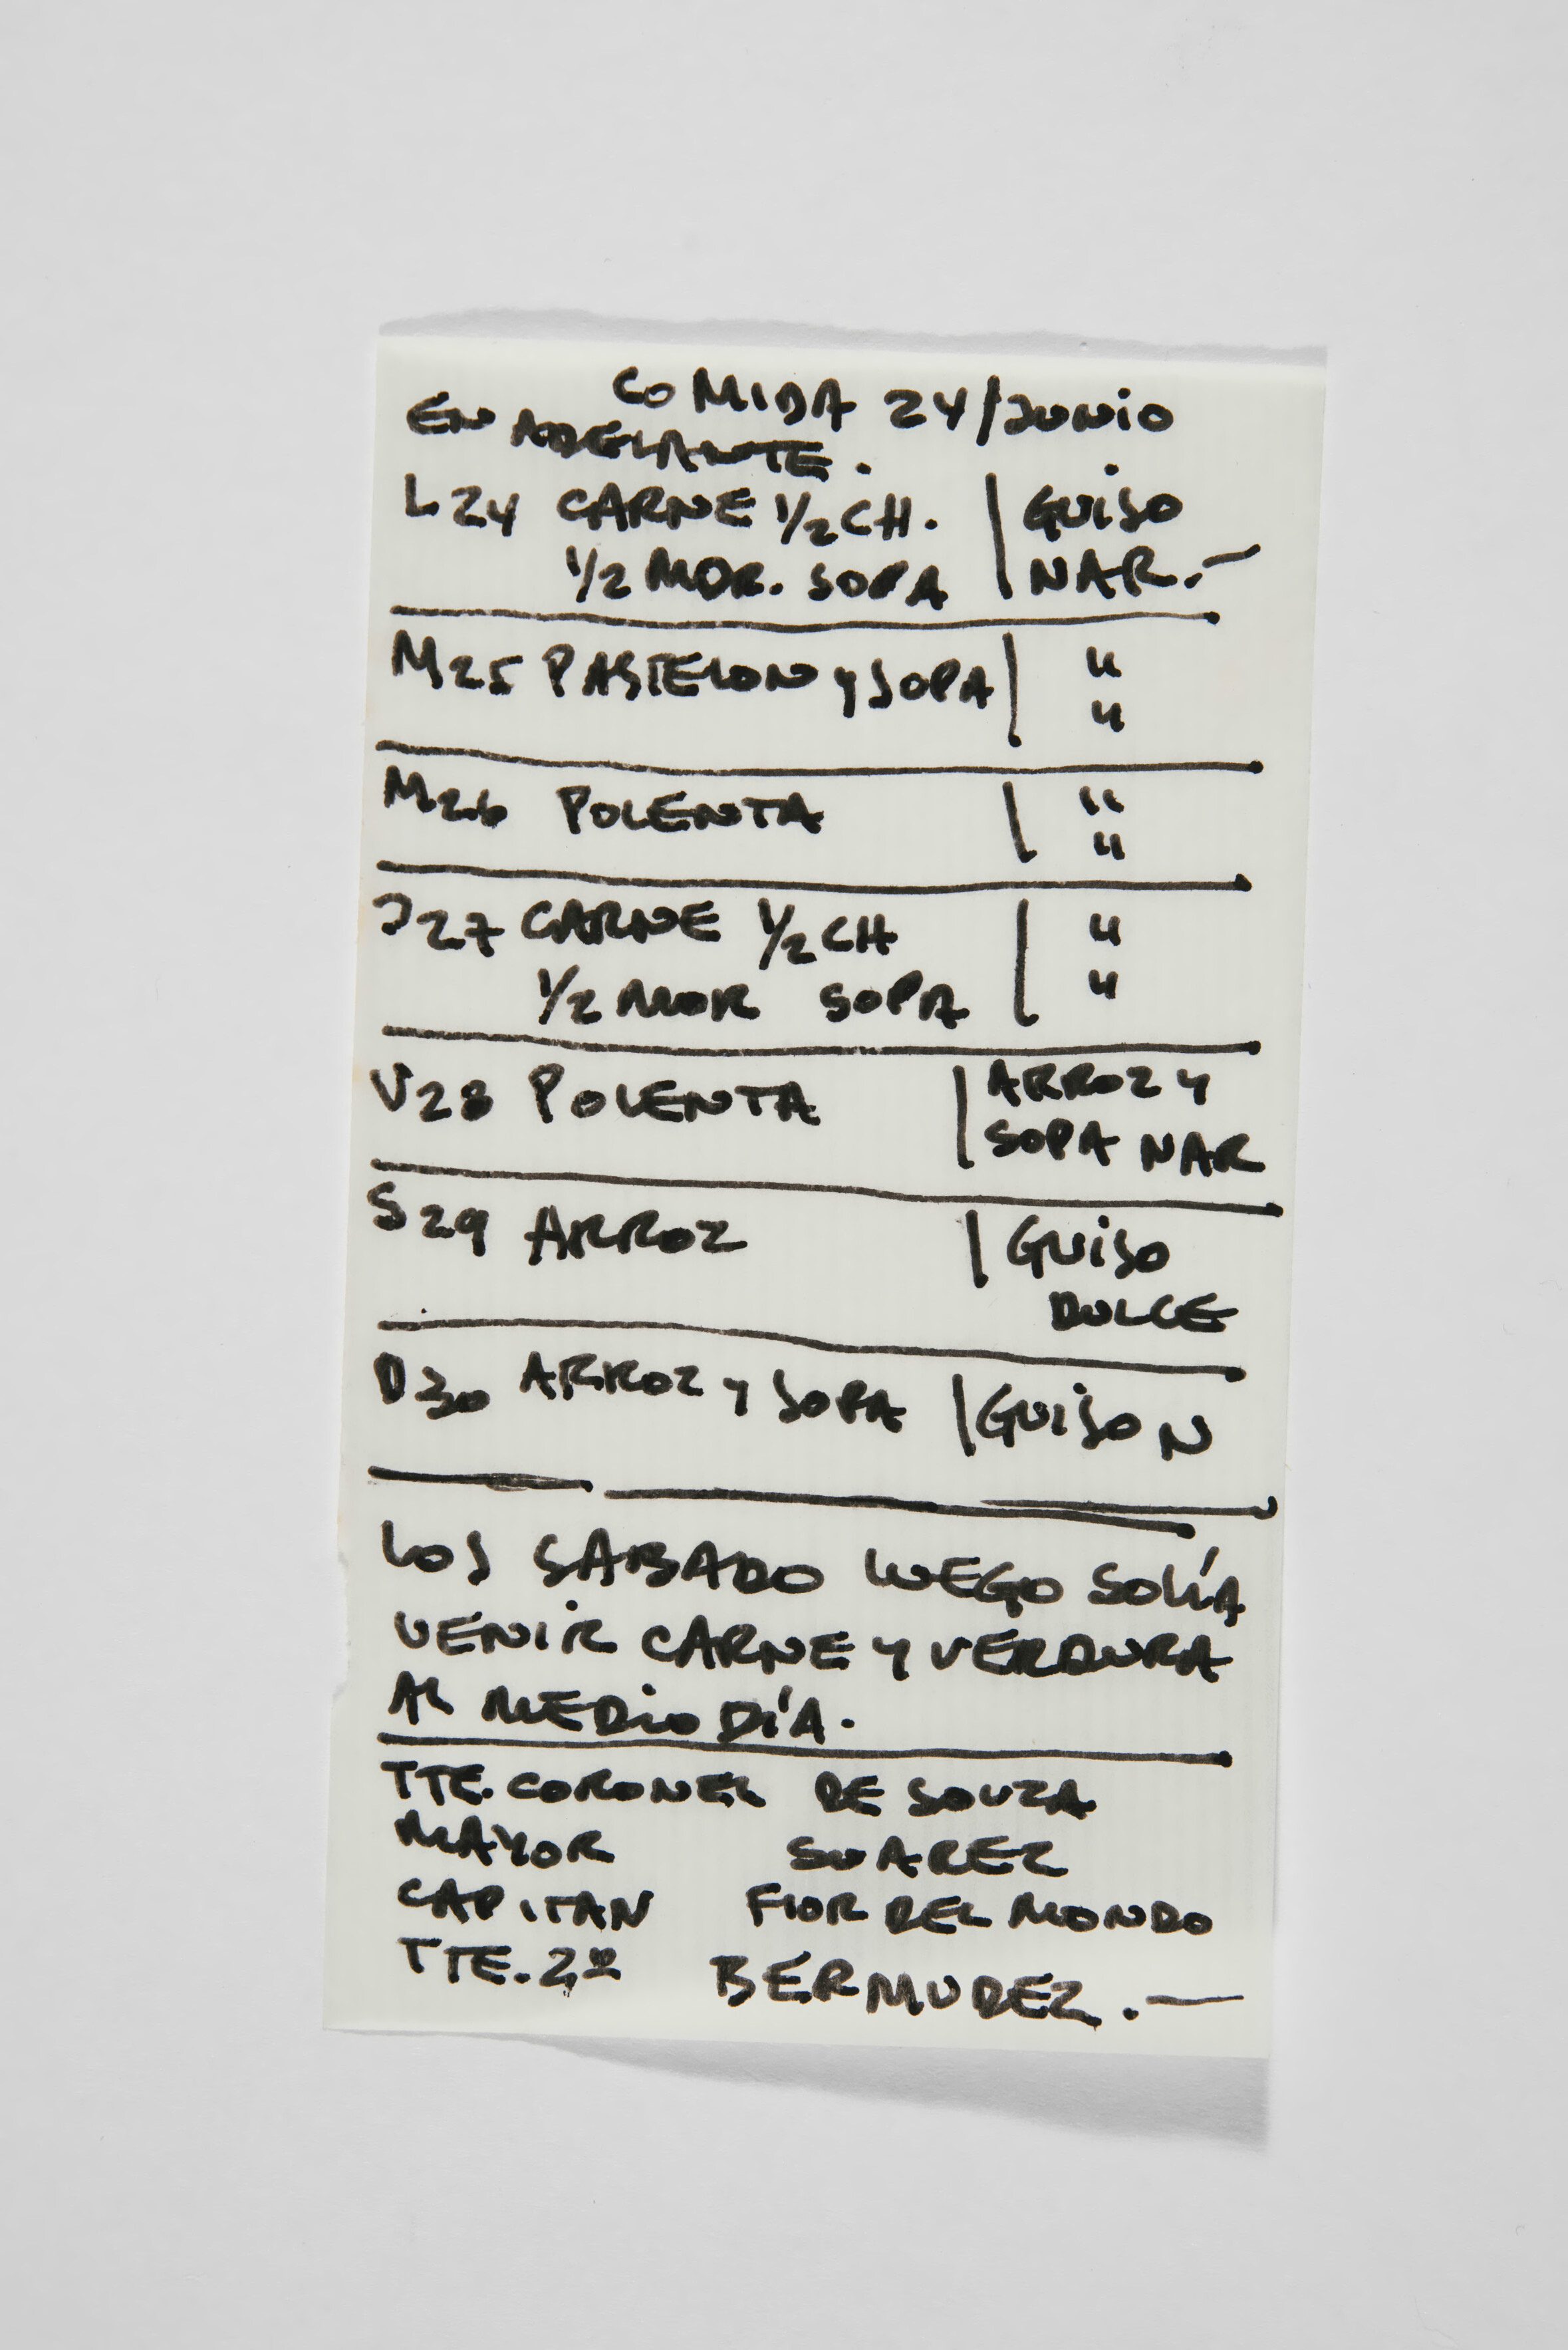 COMIDA 24/JUNIO
EN ADELANTE.
L24 CARNE 1/2 CH. | GUISO
1/2 MOR. SOPA | NAR.-
M25 PASTELON Y SOPA | "
"
M26 POLENTA | "
"
J27 CARNE 1/2 CH | "
1/2 MOR SOPA | "
V28 POLENTA | ARROZ Y
SOPA NAR
S29 ARROZ | GUISO
DULCE
D30 ARROZ Y SOPA | GUISO N
LOS SABADO LUEGO SOLÍA
VENIR CARNE Y VERDURA
AL MEDIO DÍA.
TTE. CORONEL DE SOUZA
MAYOR SUAREZ
CAPITAN FIOR DEL MONDO
TTE. 2º BERMUDEZ.-